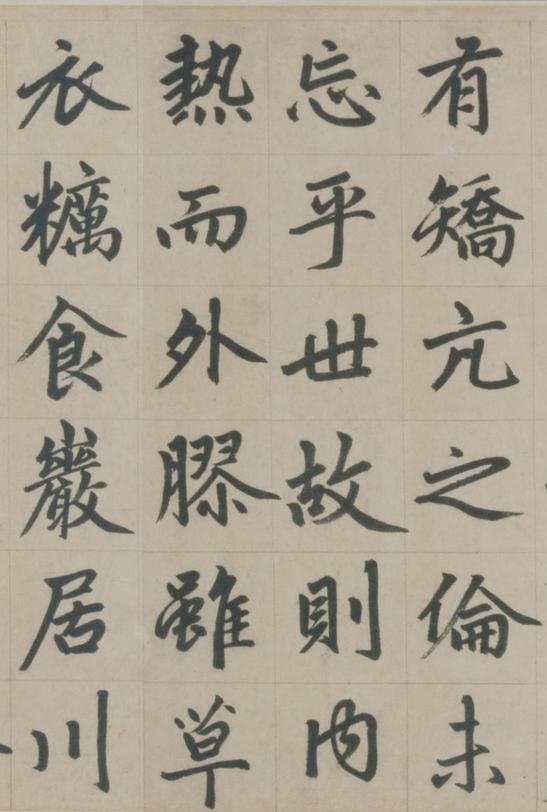 有矯亢之倫未
忘乎世故則內
熱而外膠雖草
衣糲食巖居川